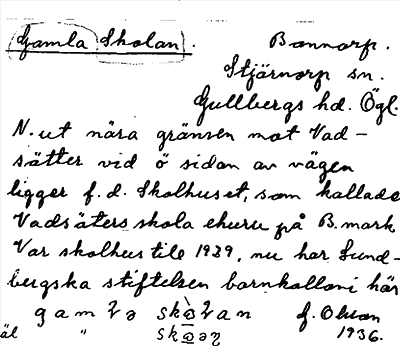 Gamla Skolan. Bonnorp.
Stjärnorp sn.
Gullbergs hd. Ögl.
N. ut nära gränsen mot Vad-
sätter vid ö sidan av vägen
ligger f. d. Skolhuset, som kallades
Vadsäters skola ehuru på B. mark
Var skolhus till 1929, nu har Sund-
bergska stiftelsen barnkolloni här
1936.
äl "